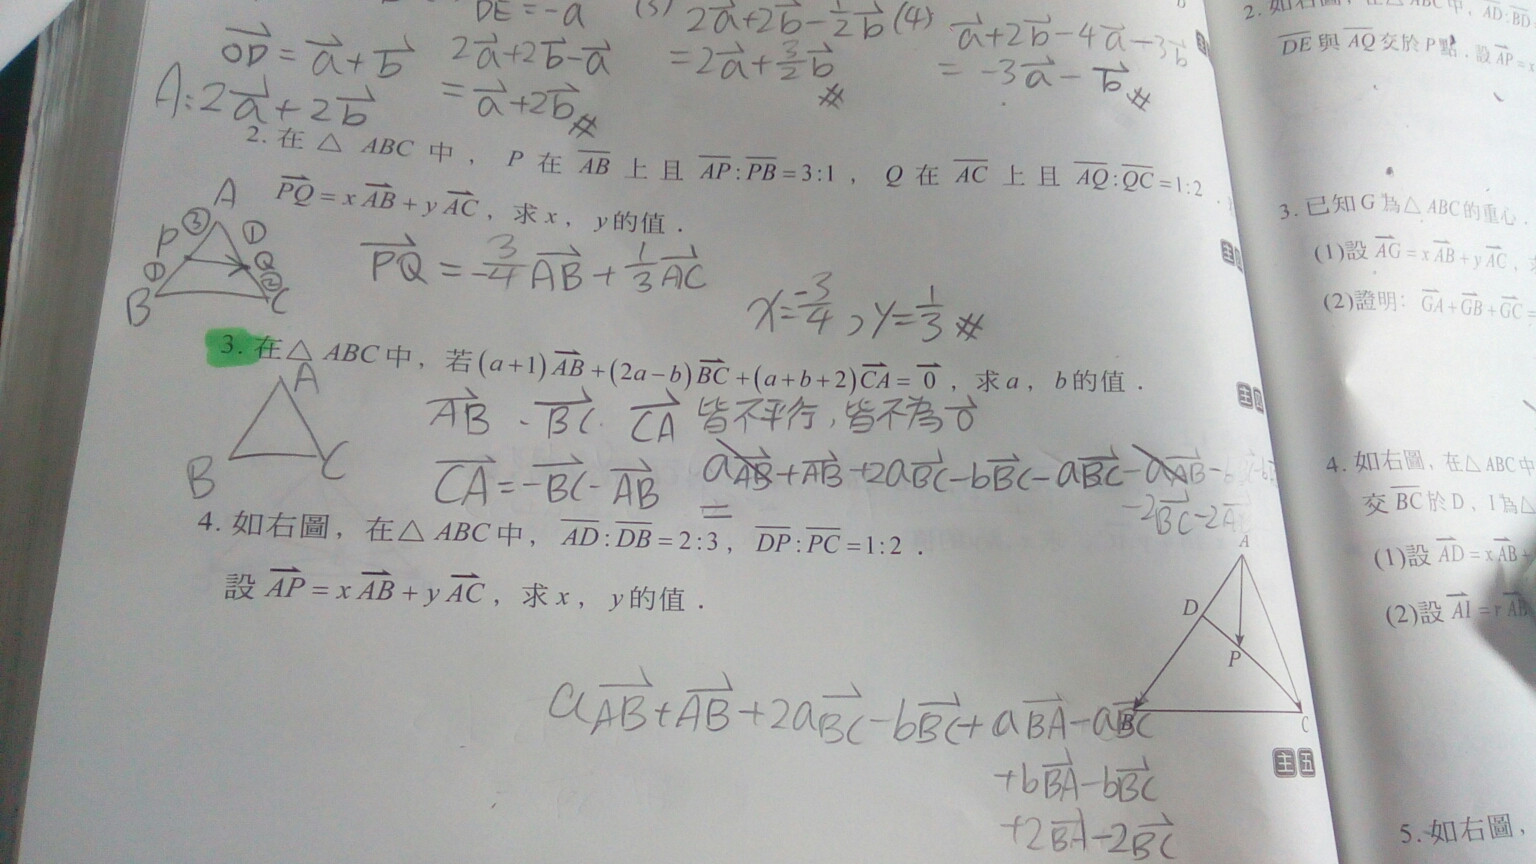 DE = -a
2a+2b-½b (4)
a+2b-4a-3b
OD = a+b
2a+2b-a
=2a+3/2b #
= -3a-b #
A:2a+2b
=a+2b #
2. 在 △ ABC 中，P 在 AB 上且 AP:PB=3:1，Q 在 AC 上且 AQ:QC=1:2．
PQ=xAB+yAC，求x，y的值．
A
P ③ ① Q
① ②
B C
PQ = -3/4 AB + 1/3 AC
x=-3/4, y=1/3 #
3. 在△ABC中，若(a+1)AB+(2a-b)BC+(a+b+2)CA=0，求a，b的值．
A
B C
AB、BC、CA 皆不平行, 皆不為0
CA=-BC-AB
aAB+AB+2aBC-bBC-aBC-aAB
-2BC-2AB
=
4. 如右圖，在△ABC中，AD:DB=2:3，DP:PC=1:2．
設AP=xAB+yAC，求x，y的值．
A
D
P
B C
aAB+AB+2aBC-bBC+aBA-aBC
+bBA-bBC
+2BA-2BC
主五
2. 如右圖，在△ABC中，AD:BD
DE與AQ交於P點．設AP=x
3. 已知G為△ABC的重心．
(1)設AG=xAB+yAC，
(2)證明：GA+GB+GC=
4. 如右圖，在△ABC中
交BC於D，I為△
(1)設AD=xAB+
(2)設AI=rAB
5. 如右圖，